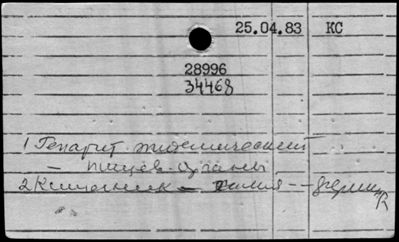 25.04.83 КС
28996
34468
1 Гепарит эндемический
— пищев. органы
2 Кишечник — химия —